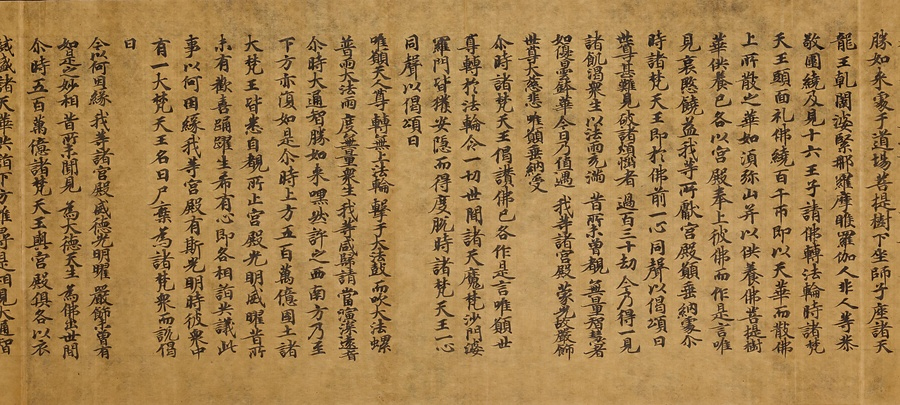 勝如来處于道場菩提樹下坐師子座諸天
龍王乹闥婆緊那羅摩睺羅伽人非人等恭
敬圍繞及見十六王子請佛轉法輪時諸梵
天王頭面礼佛繞百千帀即以天華而散佛
上所散之華如湏弥山并以供養佛菩提樹
華供養已各以宮殿奉上彼佛而作是言唯
見哀愍饒益我等所獻宮殿願垂納處尒
時諸梵天王即於佛前一心同聲以偈頌曰
世尊甚難見 破諸煩惱者 過百三十劫 今乃得一見
諸飢渴衆生 以法雨充滿 昔所未曾覩 無量智慧者
如優曇鉢華 今日乃值遇 我等諸宮殿 蒙光故嚴飾
世尊大慈悲 唯願垂納受
尒時諸梵天王偈讚佛已各作是言唯願世
尊轉於法輪令一切世間諸天魔梵沙門婆
羅門皆獲安隱而得度脫時諸梵天王一心
同聲以偈頌曰
唯願天人尊 轉無上法輪 擊于大法鼓 而吹大法螺
普雨大法雨 度無量衆生 我等咸歸請 當演深遠音
尒時大通智勝如来嘿然許之西南方乃至
下方亦復如是尒時上方五百萬億國土諸
大梵王皆悉自覩所止宮殿光明威曜昔所
未有歡喜踊躍生希有心即各相詣共議此
事以何因緣我等宮殿有斯光明時彼衆中
有一大梵天王名曰尸棄為諸梵衆而說偈
曰
今以何因緣 我等諸宮殿 威德光明曜 嚴飾未曾有
如是之妙相 昔所未聞見 為大德天生 為佛出世間
尒時五百萬億諸梵天王與宮殿俱各以衣
祴盛諸天華共詣下方推尋是相見大通智